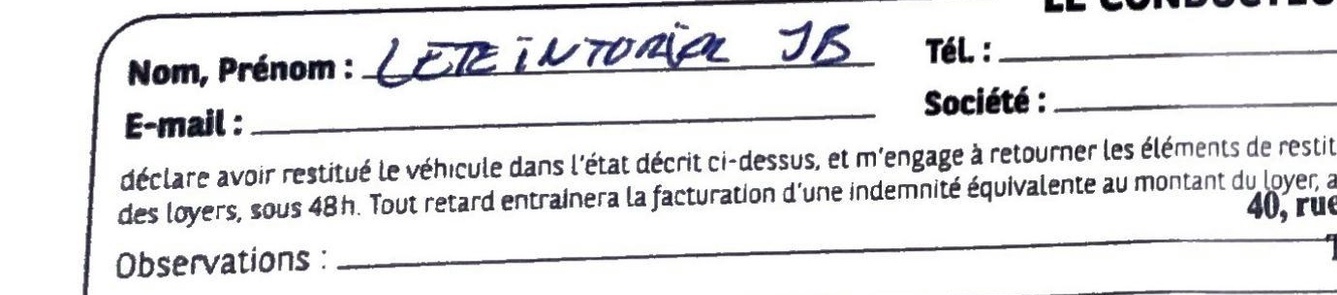 LE CONDUCTEU
Nom, Prénom : LETEINTURIER JB Tél. :
E-mail : Société :
déclare avoir restitué le véhicule dans l'état décrit ci-dessus, et m'engage à retourner les éléments de restit
des loyers, sous 48h. Tout retard entrainera la facturation d'une indemnité équivalente au montant du loyer, a
40, rue
Observations :